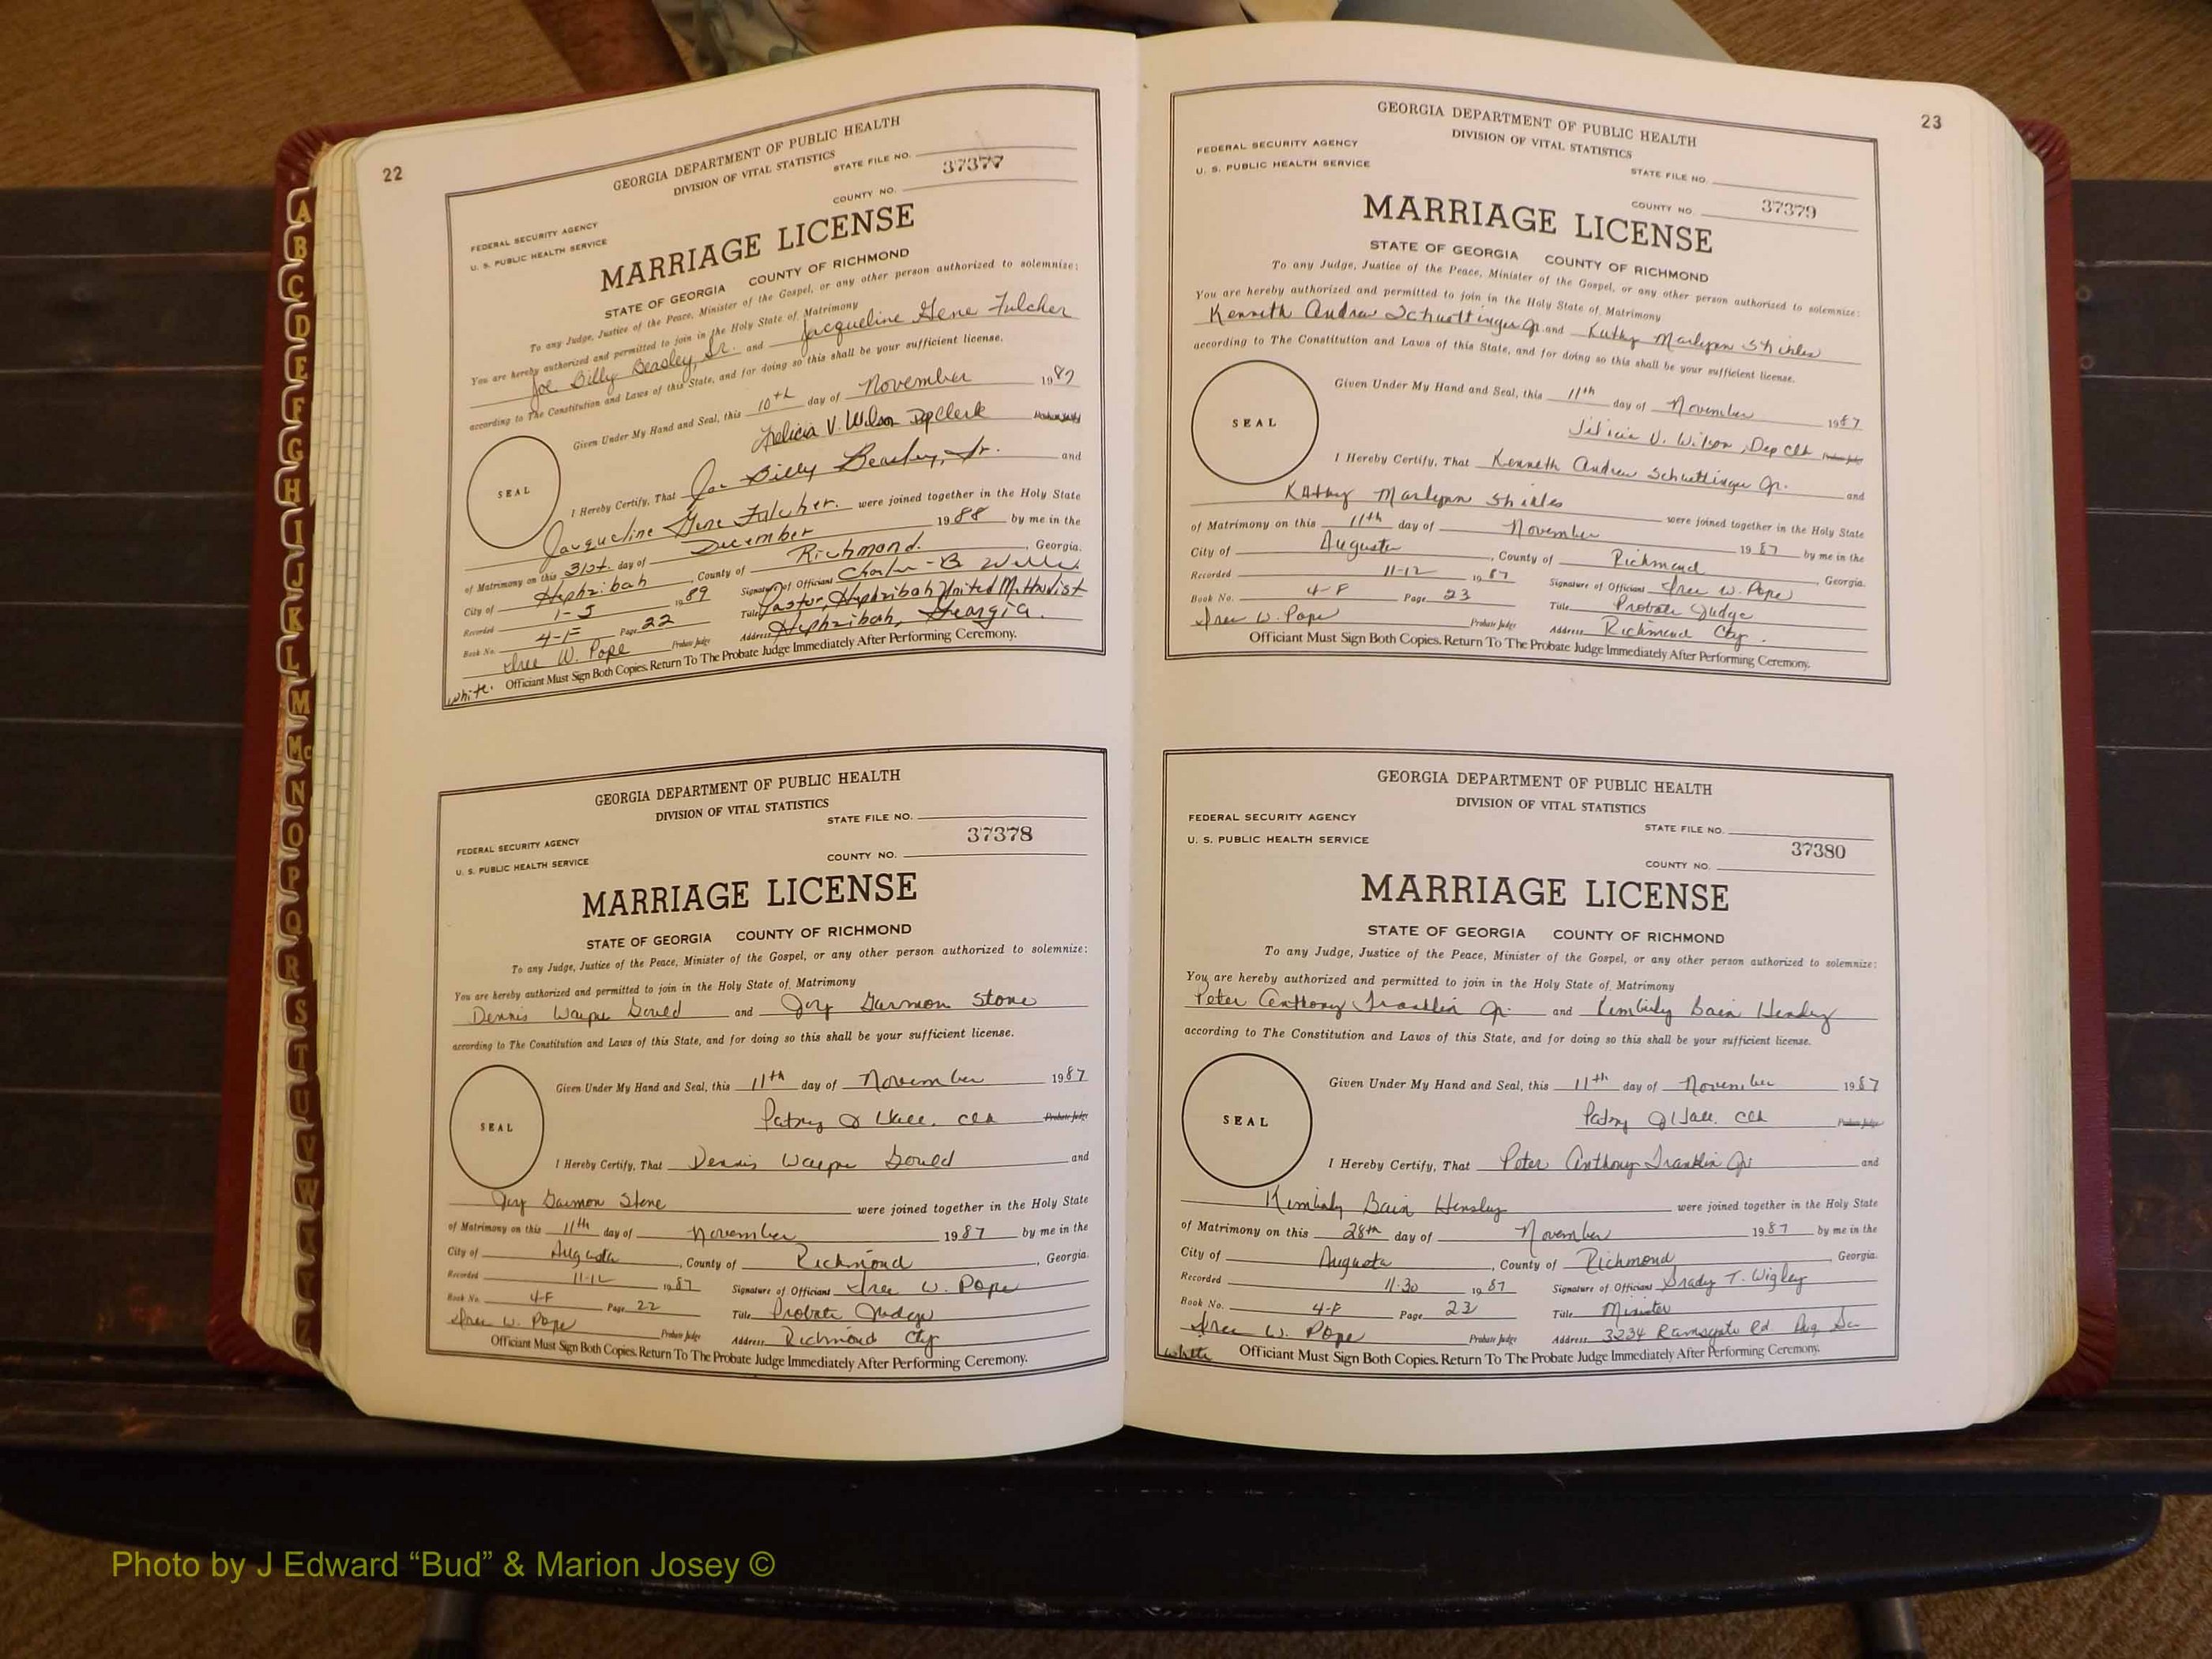 22
GEORGIA DEPARTMENT OF PUBLIC HEALTH
DIVISION OF VITAL STATISTICS
STATE FILE NO.
37377
COUNTY NO.
FEDERAL SECURITY AGENCY
U. S. PUBLIC HEALTH SERVICE
MARRIAGE LICENSE
STATE OF GEORGIA COUNTY OF RICHMOND
To any Judge, Justice of the Peace, Minister of the Gospel, or any other person authorized to solemnize:
You are hereby authorized and permitted to join in the Holy State of Matrimony
Joe Billy Beasley, Sr. and Jacqueline Gene Fulcher
according to The Constitution and Laws of this State, and for doing so this shall be your sufficient license.
Given Under My Hand and Seal, this 10th day of November 1987
Felicia V. Wilson Dep Clerk
SEAL
I Hereby Certify, That Joe Billy Beasley, Sr. and
Jacqueline Gene Fulcher. were joined together in the Holy State
of Matrimony on this 31st. day of December 1988 by me in the
City of Hephzibah, County of Richmond, Georgia.
Recorded 1-5 1989 Signature of Officiant Charles B
Book No. 4-F Page 22 Title Pastor, Hephzibah United Methodist
Iree W. Pope Probate Judge Address Hephzibah, Georgia.
Officiant Must Sign Both Copies. Return To The Probate Judge Immediately After Performing Ceremony.
white.
GEORGIA DEPARTMENT OF PUBLIC HEALTH
DIVISION OF VITAL STATISTICS
STATE FILE NO.
37378
COUNTY NO.
FEDERAL SECURITY AGENCY
U. S. PUBLIC HEALTH SERVICE
MARRIAGE LICENSE
STATE OF GEORGIA COUNTY OF RICHMOND
To any Judge, Justice of the Peace, Minister of the Gospel, or any other person authorized to solemnize:
You are hereby authorized and permitted to join in the Holy State of Matrimony
Dennis Wayne Gould and Joy Garmon Stone
according to The Constitution and Laws of this State, and for doing so this shall be your sufficient license.
Given Under My Hand and Seal, this 11th day of November 1987
Patsy Q Wall. Clk Probate Judge
SEAL
I Hereby Certify, That Dennis Wayne Gould and
Joy Garmon Stone were joined together in the Holy State
of Matrimony on this 11th day of November 1987 by me in the
City of Augusta, County of Richmond, Georgia.
Recorded 11-12 1987 Signature of Officiant Iree W. Pope
Book No. 4-F Page 22 Title Probate Judge
Iree W. Pope Probate Judge Address Richmond Cty
Officiant Must Sign Both Copies. Return To The Probate Judge Immediately After Performing Ceremony.
23
GEORGIA DEPARTMENT OF PUBLIC HEALTH
DIVISION OF VITAL STATISTICS
FEDERAL SECURITY AGENCY
U. S. PUBLIC HEALTH SERVICE
STATE FILE NO.
COUNTY NO. 37379
MARRIAGE LICENSE
STATE OF GEORGIA COUNTY OF RICHMOND
To any Judge, Justice of the Peace, Minister of the Gospel, or any other person authorized to solemnize:
You are hereby authorized and permitted to join in the Holy State of Matrimony
Kenneth Andrew Schuettinger Jr. and Kathy Marlynn Shirles
according to The Constitution and Laws of this State, and for doing so this shall be your sufficient license.
Given Under My Hand and Seal, this 11th day of November 1987
Felicia V. Wilson, Dep Clk Probate Judge
SEAL
I Hereby Certify, That Kenneth Andrew Schuettinger Jr. and
Kathy Marlynn Shirles were joined together in the Holy State
of Matrimony on this 11th day of November 1987 by me in the
City of Augusta, County of Richmond, Georgia.
Recorded 11-12 1987 Signature of Officiant Iree W. Pope
Book No. 4-F Page 23 Title Probate Judge
Iree W. Pope Probate Judge Address Richmond Cty.
Officiant Must Sign Both Copies. Return To The Probate Judge Immediately After Performing Ceremony.
GEORGIA DEPARTMENT OF PUBLIC HEALTH
DIVISION OF VITAL STATISTICS
FEDERAL SECURITY AGENCY
STATE FILE NO.
U. S. PUBLIC HEALTH SERVICE
37380
COUNTY NO.
MARRIAGE LICENSE
STATE OF GEORGIA COUNTY OF RICHMOND
To any Judge, Justice of the Peace, Minister of the Gospel, or any other person authorized to solemnize:
You are hereby authorized and permitted to join in the Holy State of Matrimony
Peter Anthony Franklin Jr. and Kimberly Bain Hensley
according to The Constitution and Laws of this State, and for doing so this shall be your sufficient license.
Given Under My Hand and Seal, this 11th day of November 1987
Patsy Q Wall. Clk Probate Judge
SEAL
I Hereby Certify, That Peter Anthony Franklin Jr and
Kimberly Bain Hensley were joined together in the Holy State
of Matrimony on this 28th day of November 1987 by me in the
City of Augusta, County of Richmond Georgia.
Recorded 11-30 1987 Signature of Officiant Grady T. Wigley
Book No. 4-F Page 23 Title Minister
Iree W. Pope Probate Judge Address 3234 Ramsgate Rd Aug Ga
white Officiant Must Sign Both Copies. Return To The Probate Judge Immediately After Performing Ceremony.
A
B
C
D
E
F
G
H
I
J
K
L
M
Mc
N
O
P
Q
R
S
T
U
V
W
Photo by J Edward “Bud” & Marion Josey ©